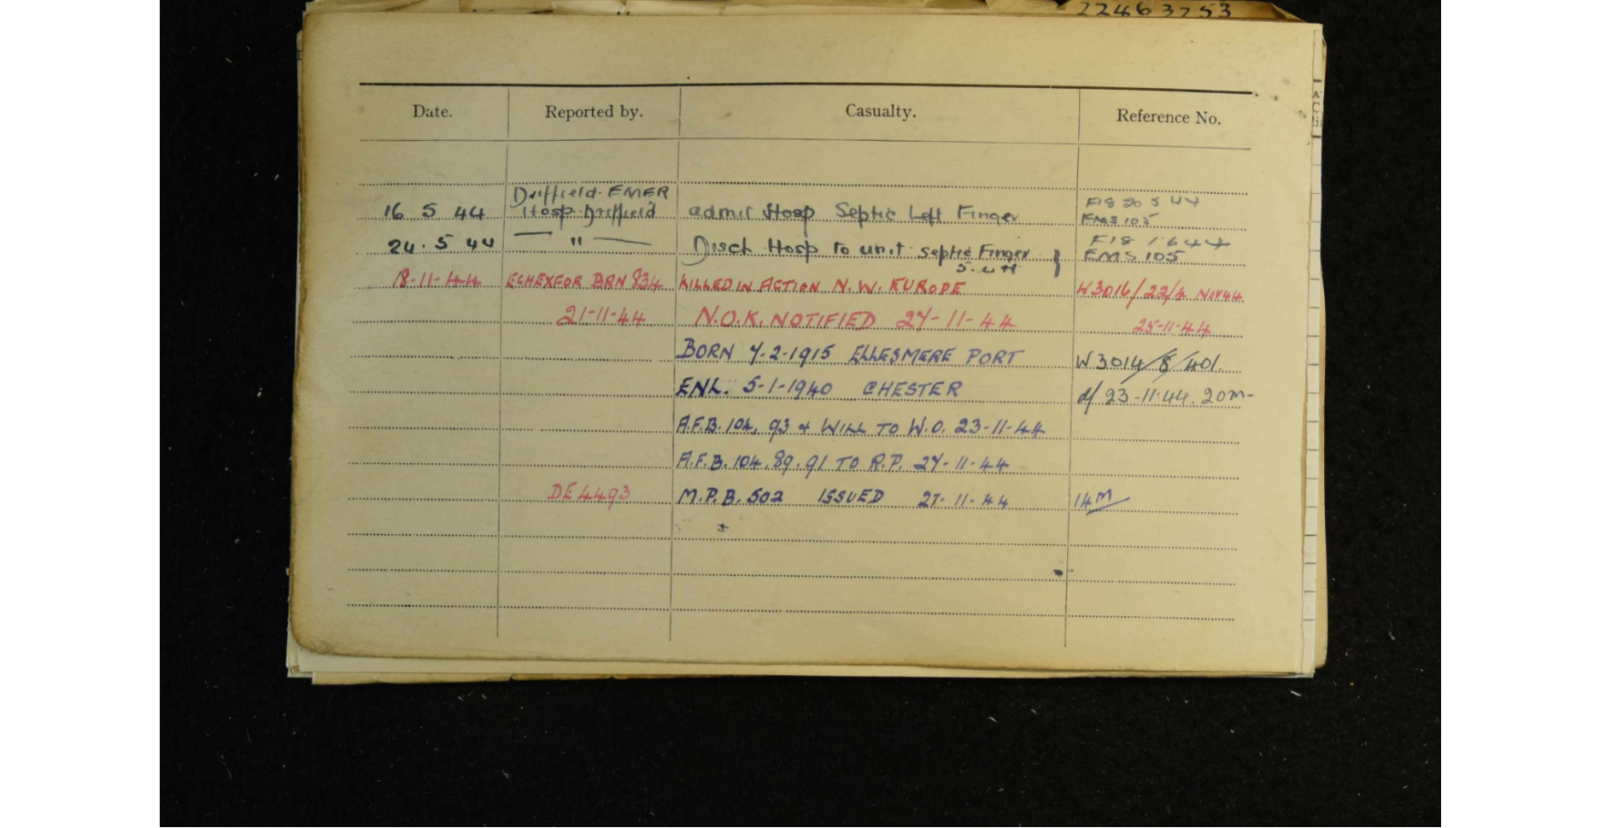 22463253
Date. Reported by. Casualty. Reference No.
Driffield EMER
16 5 44 Hosp Driffield admit Hosp Septic Left Finger F18 20 5 44
EMS 105
24.5 44 " Disch Hosp to unit septic Finger F18 1 6 44
5. EMS 105
18-11-44 ECHEXFOR BRN 834 KILLED IN ACTION N.W. EUROPE W3016/22/4 NOV 44
21-11-44 N.O.K. NOTIFIED 24-11-44 25-11-44
BORN 4-2-1915 ELLESMERE PORT W3014/8/401.
ENL. 5-1-1940 CHESTER d/ 23-11-44. 20m-
A.F.B. 104, 93 + WILL TO W.O. 23-11-44
A.F.B. 104. 89. 91 TO R.P. 24-11-44
DE4493 M.P.B. 502 ISSUED 27-11-44 14M